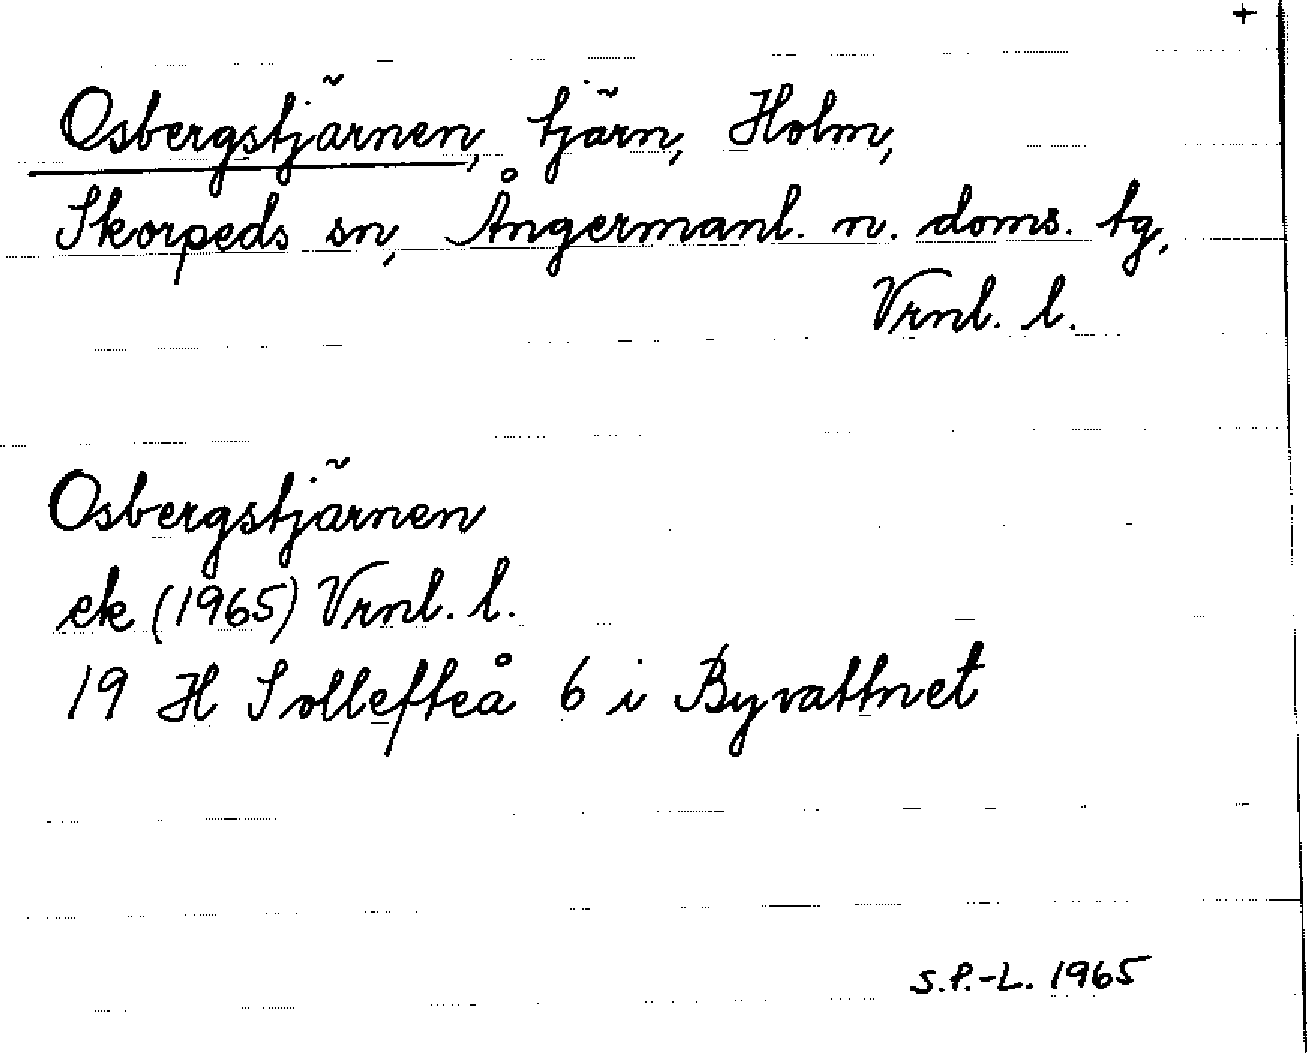 +
Osbergstjärnen, tjärn, Holm,
Skorpeds sn, Ångermanl. n. doms. tg,
Vrnl. l.
Osbergstjärnen
ek (1965) Vrnl. l.
19 H Sollefteå 6 i Byvattnet
S.P.-L. 1965